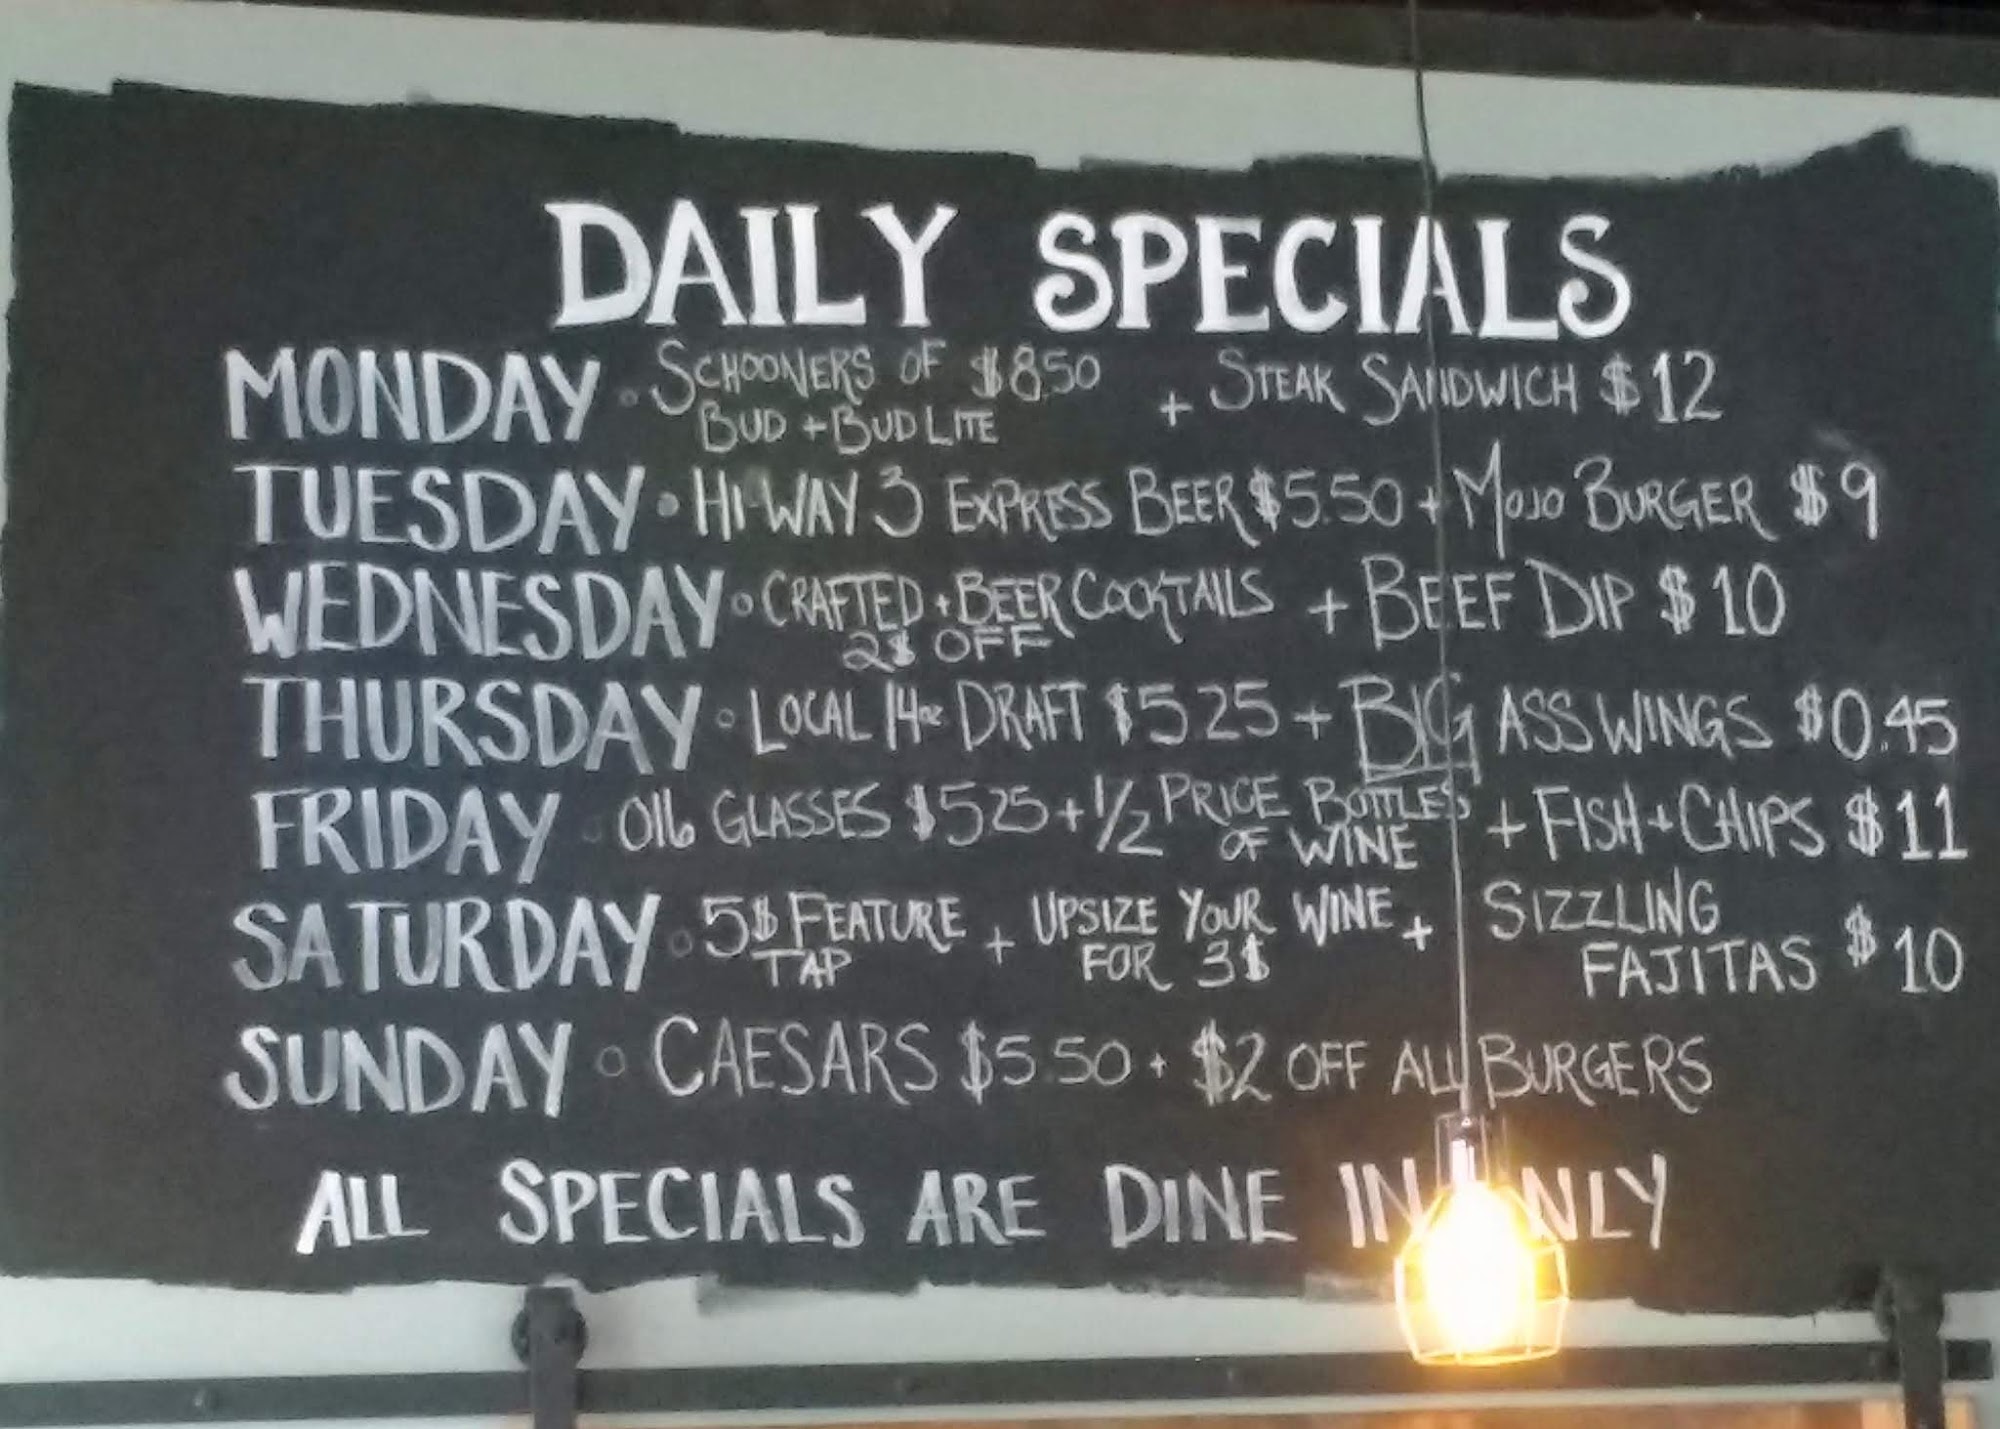 DAILY SPECIALS
MONDAY • SCHOONERS OF $8.50 + STEAK SANDWICH $12
BUD + BUD LITE
TUESDAY • HI-WAY 3 EXPRESS BEER $5.50 + MOJO BURGER $9
WEDNESDAY • CRAFTED + BEER COCKTAILS + BEEF DIP $10
2$ OFF
THURSDAY • LOCAL 14oz DRAFT $5.25 + BIG ASS WINGS $0.45
FRIDAY • GLASSES $5.25 + 1/2 PRICE BOTTLES + FISH + CHIPS $11
OF WINE
SATURDAY • 5$ FEATURE + UPSIZE YOUR WINE + SIZZLING
TAP FOR 3$ FAJITAS $10
SUNDAY • CAESARS $5.50 + $2 OFF ALL BURGERS
ALL SPECIALS ARE DINE IN ONLY